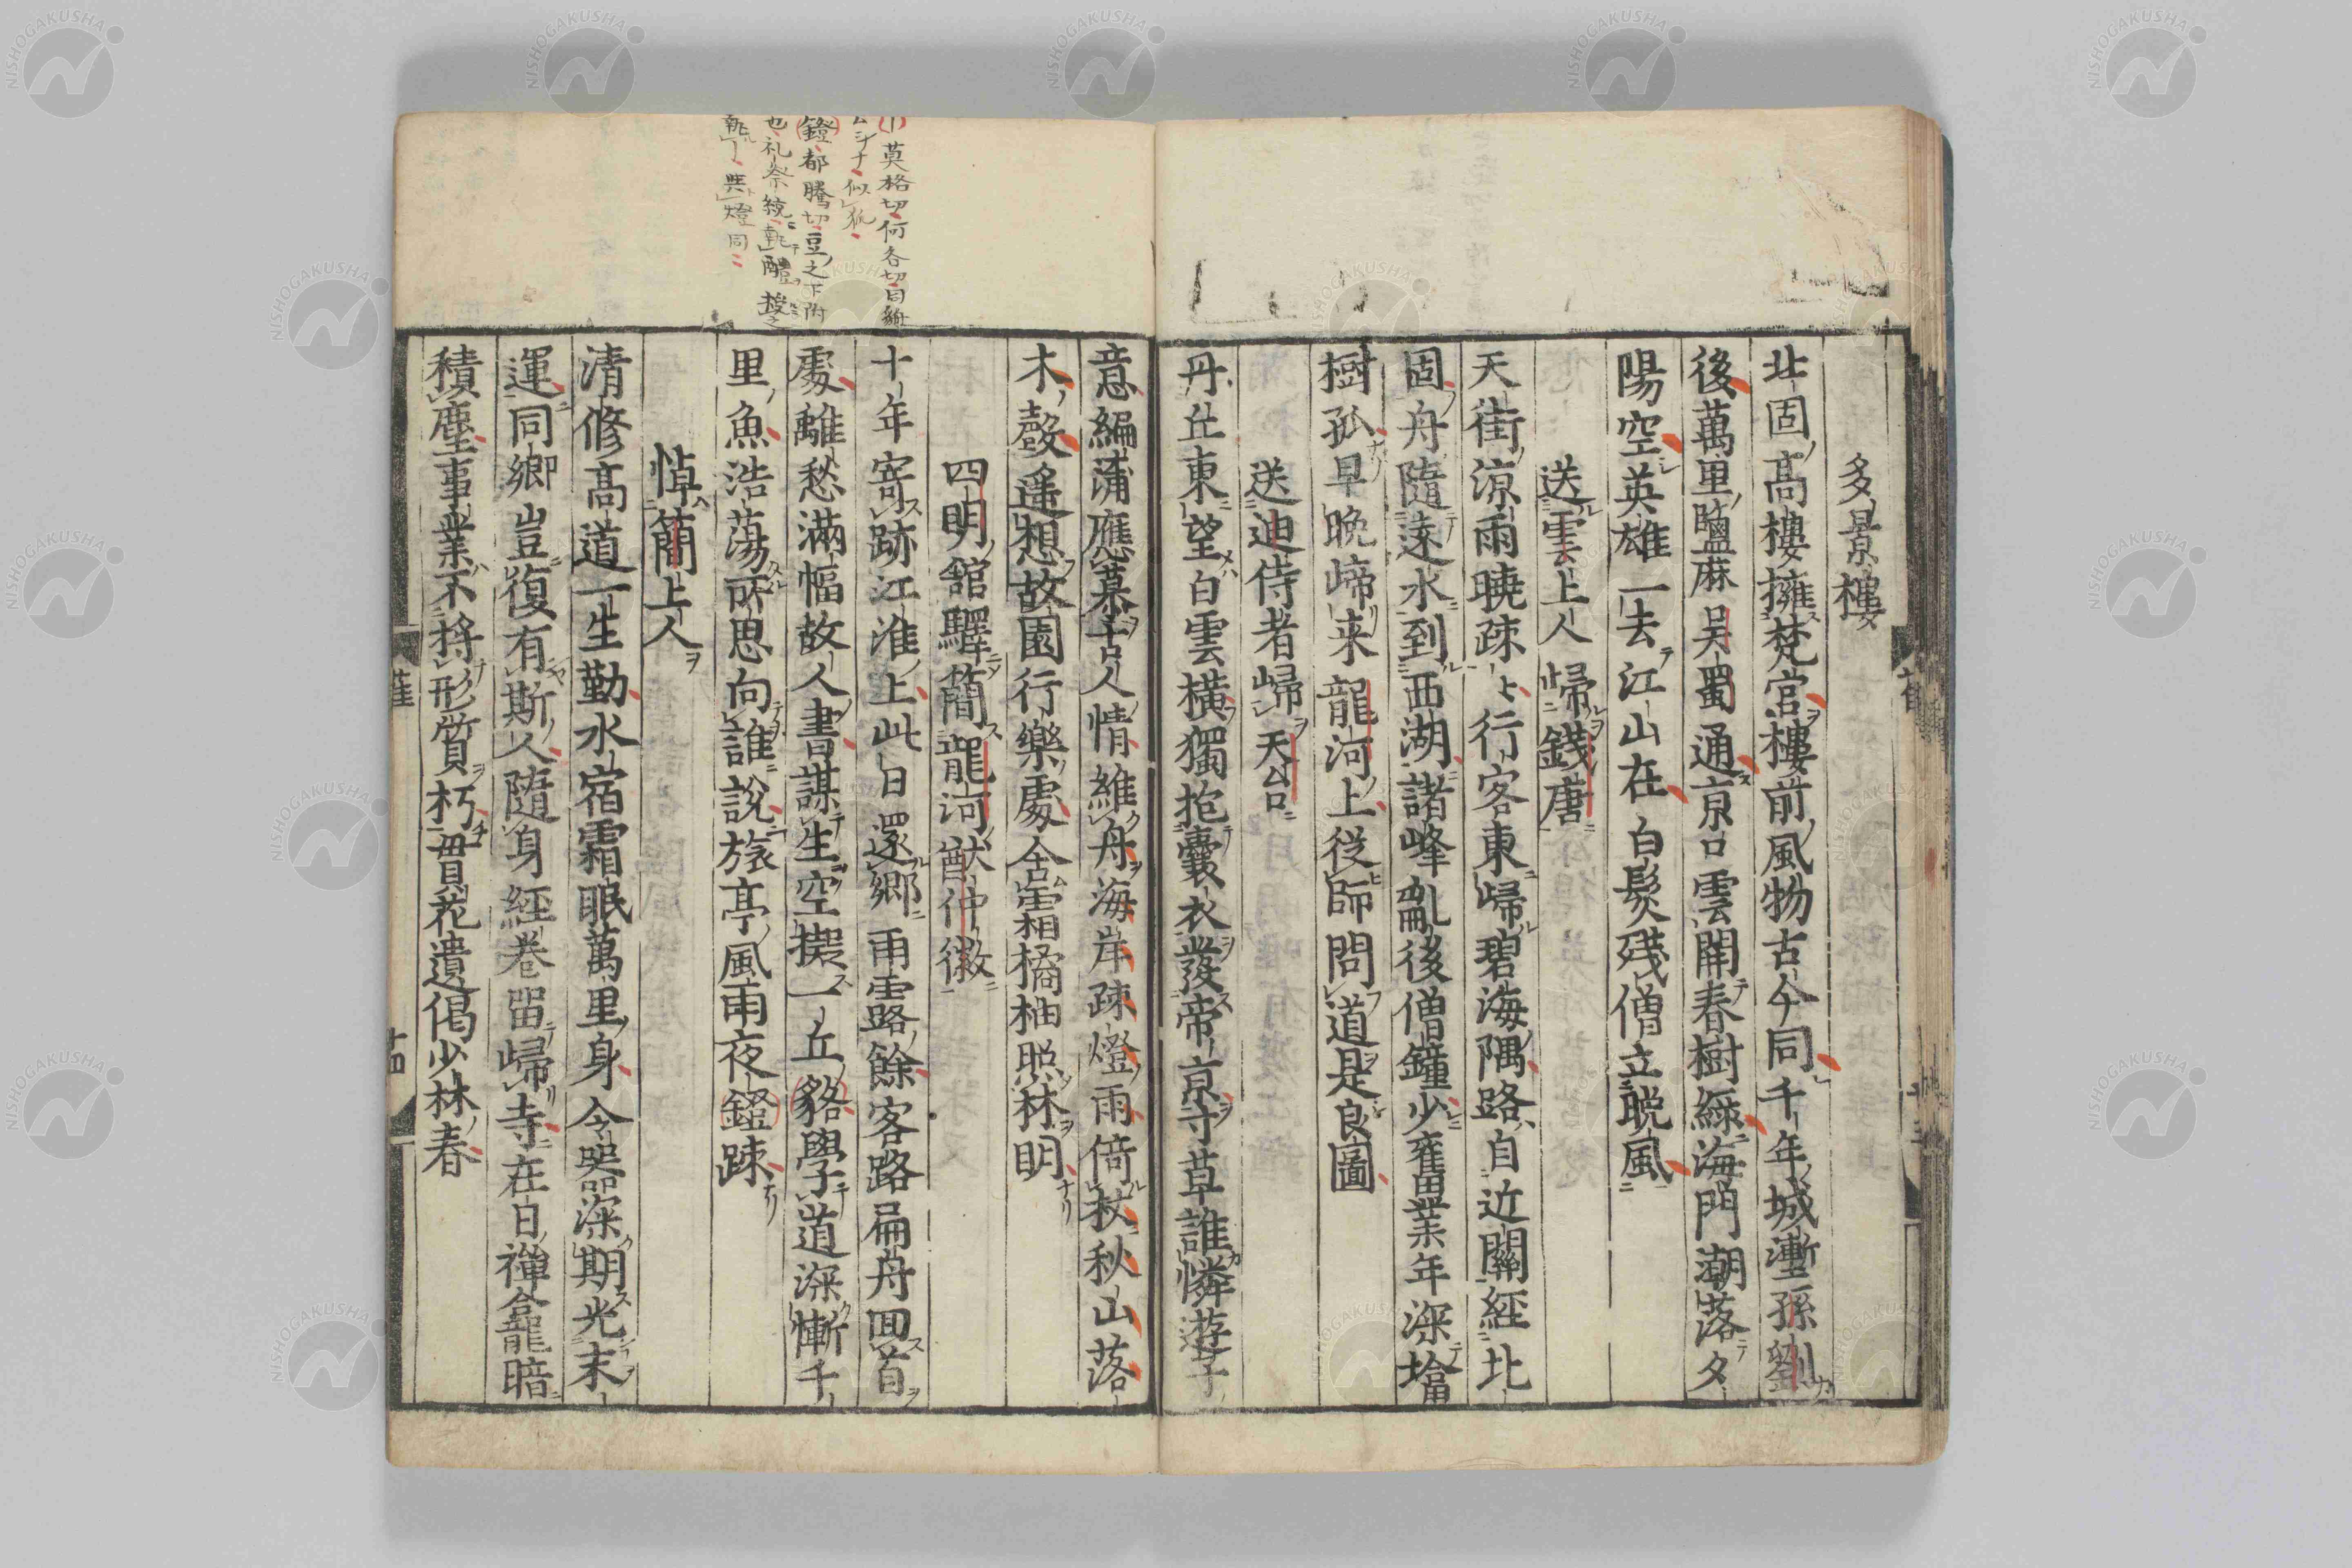 多景樓
北固高樓擁梵宮樓前風物古今同千年城塹孫劉
後萬里鹽麻吳蜀通京口雲開春樹綠海門潮落夕
陽空英雄一去江山在白髮殘僧立晚風
送雲上人歸錢唐
天街涼雨曉疎〻行客東歸碧海隅路自近關經北
固舟隨遠水到西湖諸峰亂後僧鐘少舊業年深墖
樹孤早晚歸来龍河上從師問道是良圖
送迪侍者歸天台
丹丘東望白雲橫獨抱囊衣發帝京寸草誰憐遊子
意編蒲應慕古人情維舟海岸疎燈雨倚杖秋山落
木聲遥想故園行樂處含霜橘柚照林明
四明舘驛簡龍河猷仲徽
十年寄跡江淮上此日還鄉雨露餘客路扁舟回首
處離愁滿幅故人書謀生空擬一丘貉學道深慚千
里魚浩蕩所思向誰說旅亭風雨夜鐙疎
悼簡上人
清修高道一生勤水宿霜眠萬里身令器深期光末
運同鄉豈復有斯人隨身經卷留歸寺在日禪龕暗
積塵事業不將形質朽曹花遺偈少林春
莫格切何各切同貉
似狐
鐙都騰切豆之下附
也礼祭統執醴授之
執鐙與燈同
十四
NISHOGAKUSHA